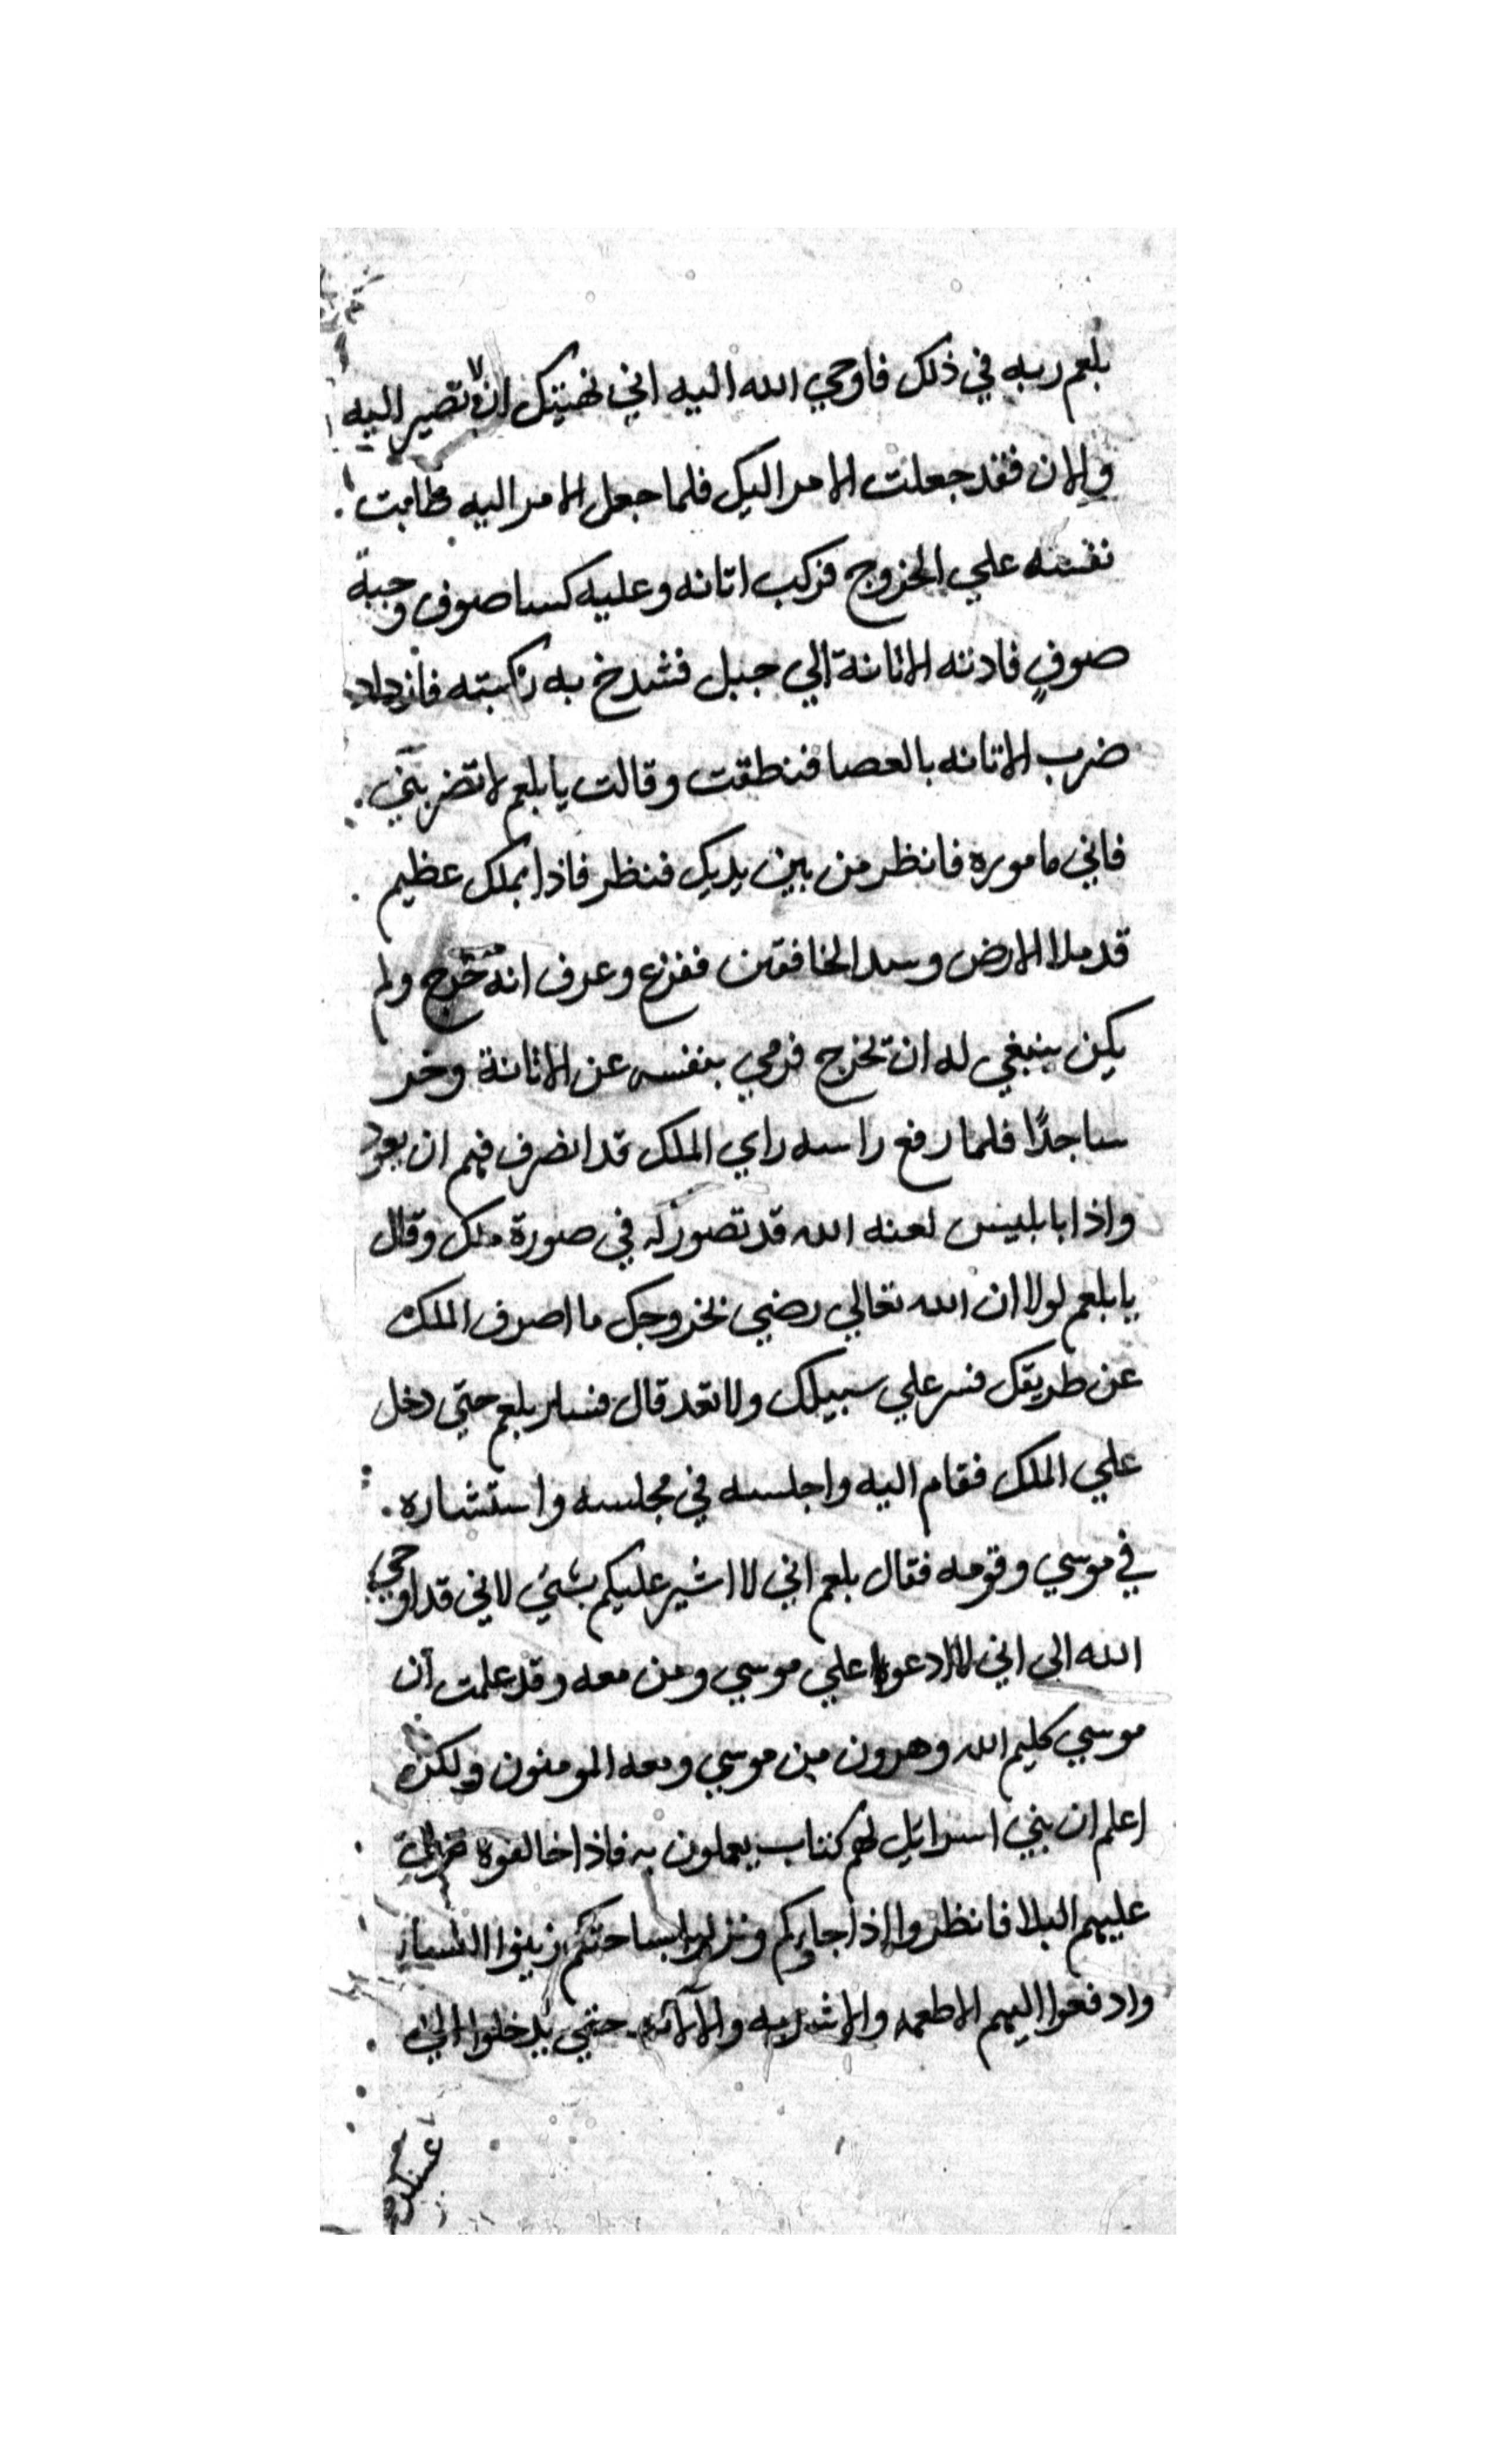 بلعم ربه في ذلك فاوحي الله اليه اني نهيتك ان لا تصير اليه
والان فقد جعلت الامر اليك فلما جعل الامر اليه طابت
نفسه علي الخروج فركب اتانه وعليه كسا صوف وجبة
صوف فادنته الاتانة الي جبل فشدخ به ركبته فازداد
ضرب الاتانه بالعصا فنطقت وقالت يا بلعم لا تضربني
فاني ماموره فانظر من بين يديك فنظر فاذا بملك عظيم
قد ملا الارض وسد الخافقين ففزع وعرف انه خرج ولم
يكن ينبغي له ان تخرج فرمي بنفسه عن الاتانة وخر
ساجدًا فلما رفع راسه راي الملك قد انصرف فهم ان يعود
واذا بابليس لعنه الله قد تصور له في صورة ملك وقال
يا بلعم لولا ان الله تعالي رضي بخروجك ما اصرف الملك
عن طريقك فسر علي سبيلك ولا تعد قال فسار بلعم حتي دخل
علي الملك فقام اليه واجلسه في مجلسه واستشاره
في موسي وقومه فقال بلعم اني لا اشير عليكم بشئ لاني قد اوحي
الله الى اني لا ادعوا علي موسي ومن معه وقد علمت ان
موسي كليم الله وهرون من موسي ومعه المومنون ولكن
اعلم ان بني اسرائيل لهم كتاب يعملون به فاذا خالفوه
عليهم البلا فانظروا اذا جاوكم ونزلوا بساحتكم زينوا النسا
وادفعوا اليهم الاطعمه والاشربه حتي يدخلوا الي
عسكره